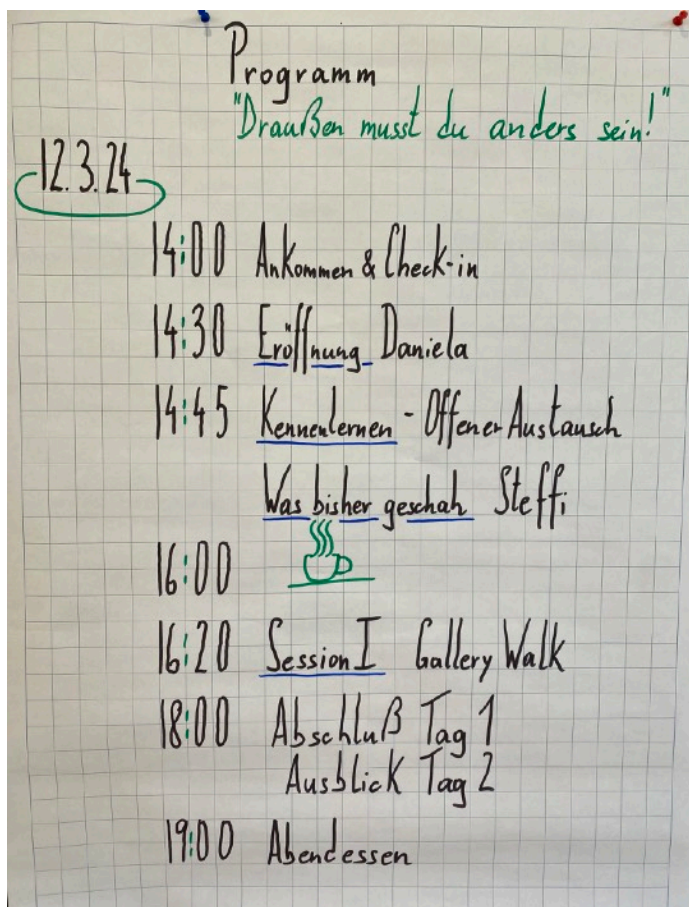 Programm
"Draußen musst du anders sein!"
12.3.24
14:00 Ankommen & Check-in
14:30 Eröffnung Daniela
14:45 Kennenlernen - Offener Austausch
Was bisher geschah Steffi
16:00
16:20 Session I Gallery Walk
18:00 Abschluß Tag 1
Ausblick Tag 2
19:00 Abendessen